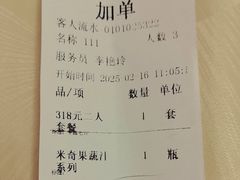 加单
客人流水 0101025322
名称 111 人数 3
服务员 李艳玲
开始时间 2025-02-16 11:05:1
品/项 数量 单位
318元二人 1 套
套餐
米奇果蔬汁 1 瓶
系列